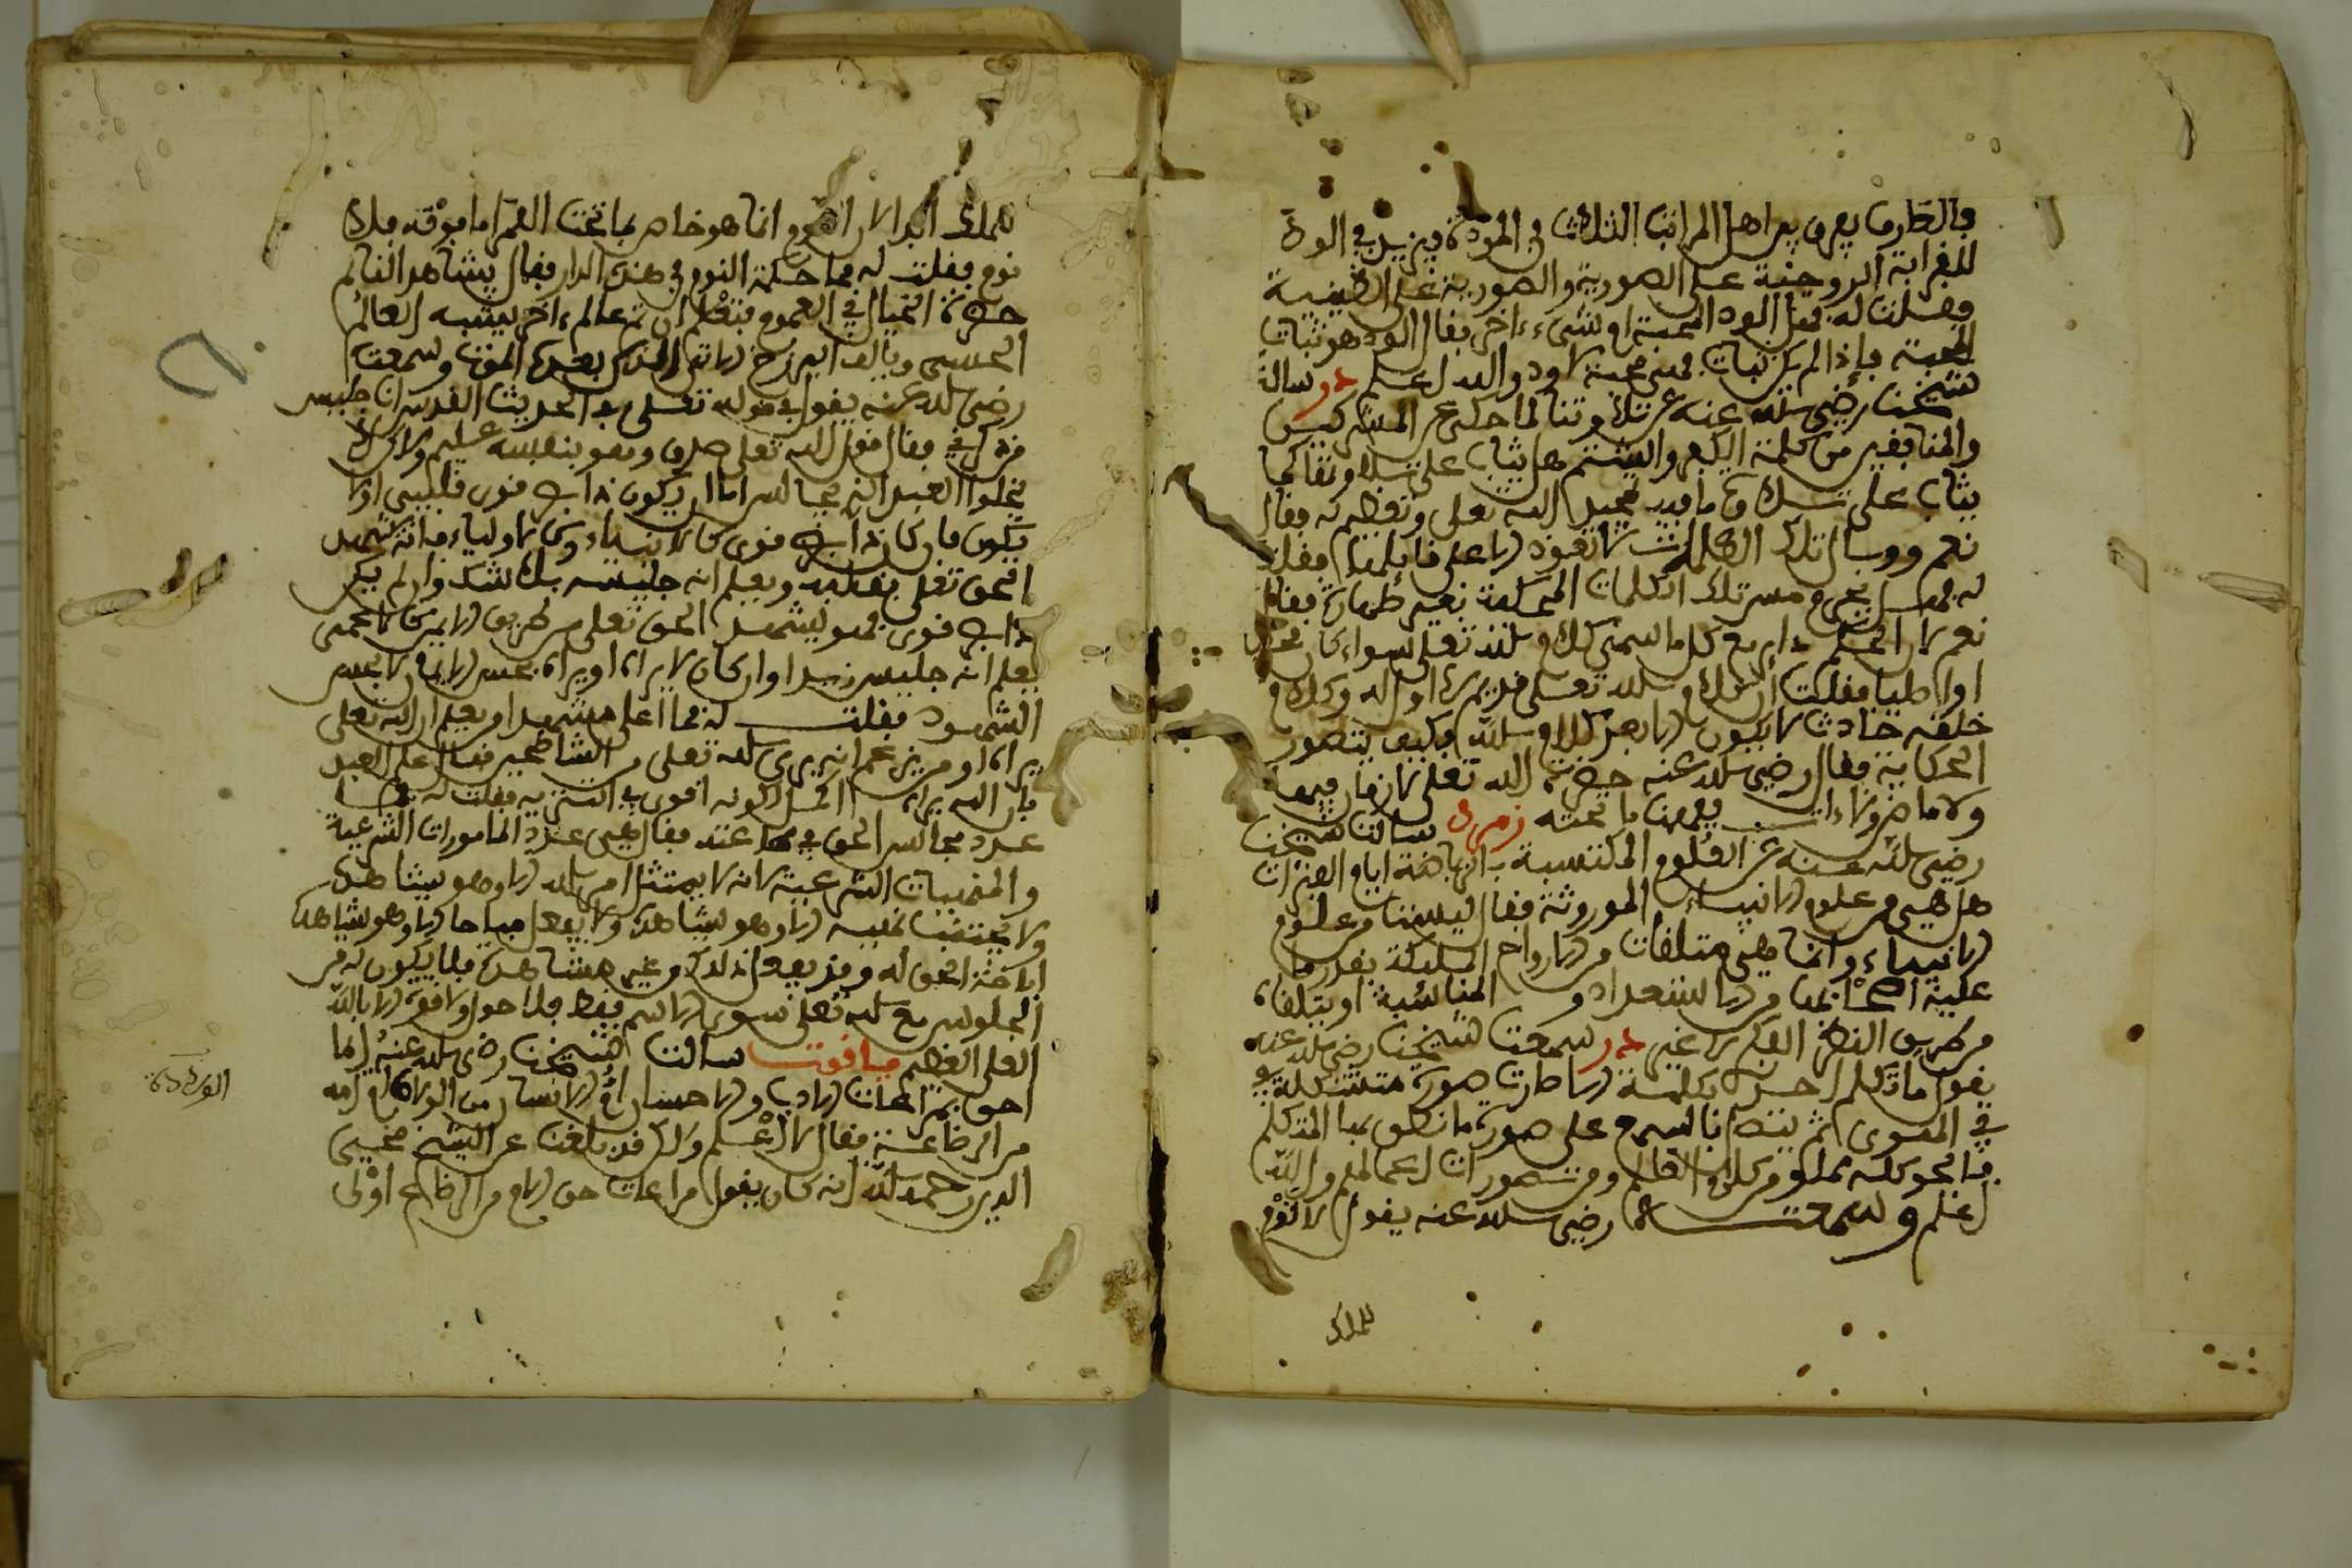 فالطارف يعرف بعد اهل المراتب الثلاث في المودة فيزيد في الود
للقرابة الروحية على الصورية والصورية على الطينية
فقلت له فهل الود المحبة او شيء ءاخر فقال الود هو ثبات
المحبة فإذا لم يكن ثبات فهي محبة لا ود والله اعلم در سالت
شيخنا رضي الله عنه عن تلاوتنا لما حكى عن المشركين
والمنافقين من كلمة الكفر والشتم هل يثاب على تلاوتنا كما
يثاب على تلاوة ما فيه تمجيد الله تعلى وتعظيمه فقال
نعم ووبال تلك الكلمات لا تعود الا على قايلها فقلت
له فهل يحرم مس تلك الكلمات المحكية بغير طهارة فقال
نعم لان الحكم داير مع كل ما سمي كلام الله تعلى سواء كان محكيا
اولا طيبا فقلت ان كلام الله تعلى قديم لا اول له وكلام
خلقه حادث لا يكون الا بعد كلام الله فكيف يتصور
الحكاية فقال رضي الله عنه حضرة الله تعلى لا زمان فيها
ولا ماض ولا ءات فافهمنا ما تحته زمرد سالت شيخنا
رضي الله عنه عن العلوم المكتسبة بالرياضة ايام الفترات
هل هي من علوم الانبياء الموروثة فقال ليست من علوم
الانبياء وانما هي متلقات من الارواح الملكية بقدر ما
عليه اصحابها من الاستعداد والمناسبة او بتلقاه
من طريق النظر الفكري لا غير در سمعت شيخنا رضي الله عنه
يقول ما تكلم احد بكلمة الا صارت صورة متشكلة
في الهوى ثم يتصل بالسمع على صورة ما نطق بها المتكلم
فالجو كله مملو من كلام العالم ومن صور اعمالهم والله
اعلم وسمعته رضي الله عنه يقول لا نوم
للملك
للملك ابدا لان النوم انما هو خاص بما تحت القمر اما فوقه فلا
نوم فقلت له فما حكمة النوم في هذه الدار فقال يشاهد النايم
حضرة الخيال في العموم فتعلم ان ثم عالم ءاخر يشبه العالم
الحسي ويالف البرزخ الاتي اليه بعد الموت وسمعته
رضي الله عنه يقول في قوله تعلى في الحديث القدسي انا جليس
من ذكرني فقال قول الله تعلى صدق وهو بنفسه عليم ولا كن لا
يخلوا العبد الذي يجالس اما ان يكون ذا بصر قوي قلبي او لا
يكون فان كان ذا بصر قوي كالانبياء وكالاولياء فانه يشهد
الحق تعلى بقلبه ويعلم انه جليسه بلا شك وان لم يكن
ذا بصر قوي فهو يشهد الحق تعلى من طريق الايمان كالاعمى
يعلم انه جليس زيد وان كان لا يراه او يراه بحس الايمان لا بحس
الشهود فقلت له فما اعلى مشهد او يعلم ان الله تعلى
يراه او من يزعم انه يرى الله تعلى من الشاطحين فقال علم العبد
بان الله يراه اكمل لكونه اقوى في التنزيه فقلت له فما
عدد مجالس الحق في عبده فقال هي عدد المامورات الشرعية
والمنهيات الشرعية لانه لا يمتثل امر الله الا وهو يشاهده
ولا يجتنب نهيه الا وهو يشاهده ولا يفعل مباحا الا وهو يشاهد
اباحة الحق له ومن يفعل ذلك وغير مشاهدة فلا يكون له من
الجلوس مع الله تعلى سوى الاسم فقط فلا حول ولا قوة الا بالله
العلي العظيم ياقوت سالت شيخنا رضي الله عنه ايما
احق بمراعات الادب والاحسان ام الانسان من الولادة ام امه
من الرضاعة فقال لا اعلم ولاكن قد بلغنا عن الشيخ محيي
الدين رحمه الله انه كان يقول مراعات حق الام من الرضاع اولى
الولادة